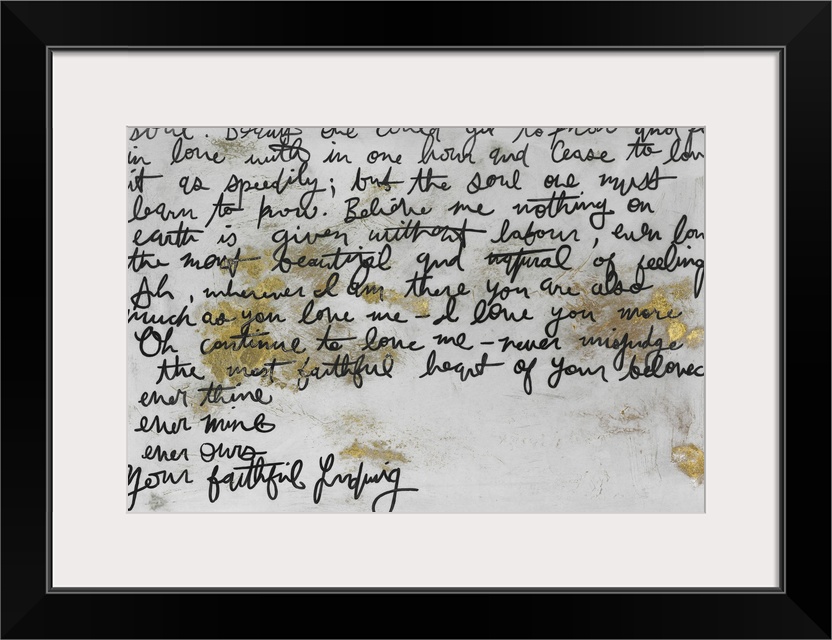 in love with in one hour and cease to lov
it as speedily; but the soul one must
learn to know. Believe me nothing on
earth is given without labour, even lov
the most beautiful and natural of feeling
Ah, wherever I am there you are also
much as you love me - I love you more
Oh continue to love me - never misjudge
the most faithful heart of your beloved
ever thine
ever mine
ever ours
Your faithful Ludwig